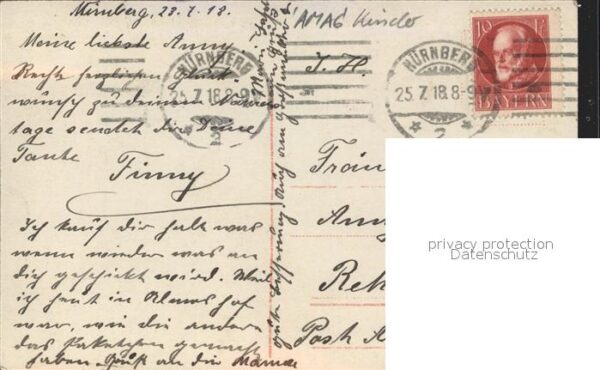 Nürnberg, 23.7.18.
Meine liebste Anny
Recht herzlichen Glück
wunsch zu deinem Namens
tage sendet dir Deine
Tante
Finny
Ich kauf dir halt was
wenn wieder was an
dich geschickt wird. Weil
ich heut in
war, wie die andern
das gemacht
haben. Gruß an die Mama
gute Besserung, auch am
"AMAG" Kinder
NÜRNBERG
25.7.18.8-9
2
NÜRNBERG
25.7.18.8-9V
2
10 Pf
BAYERN
I. H.
Fräu
Ann
Reh
Post A
privacy protection
Datenschutz